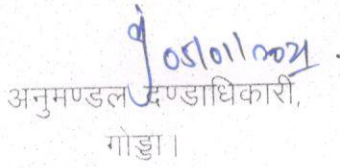 05/01/2021.
अनुमण्डल दण्डाधिकारी,
गोड्डा।